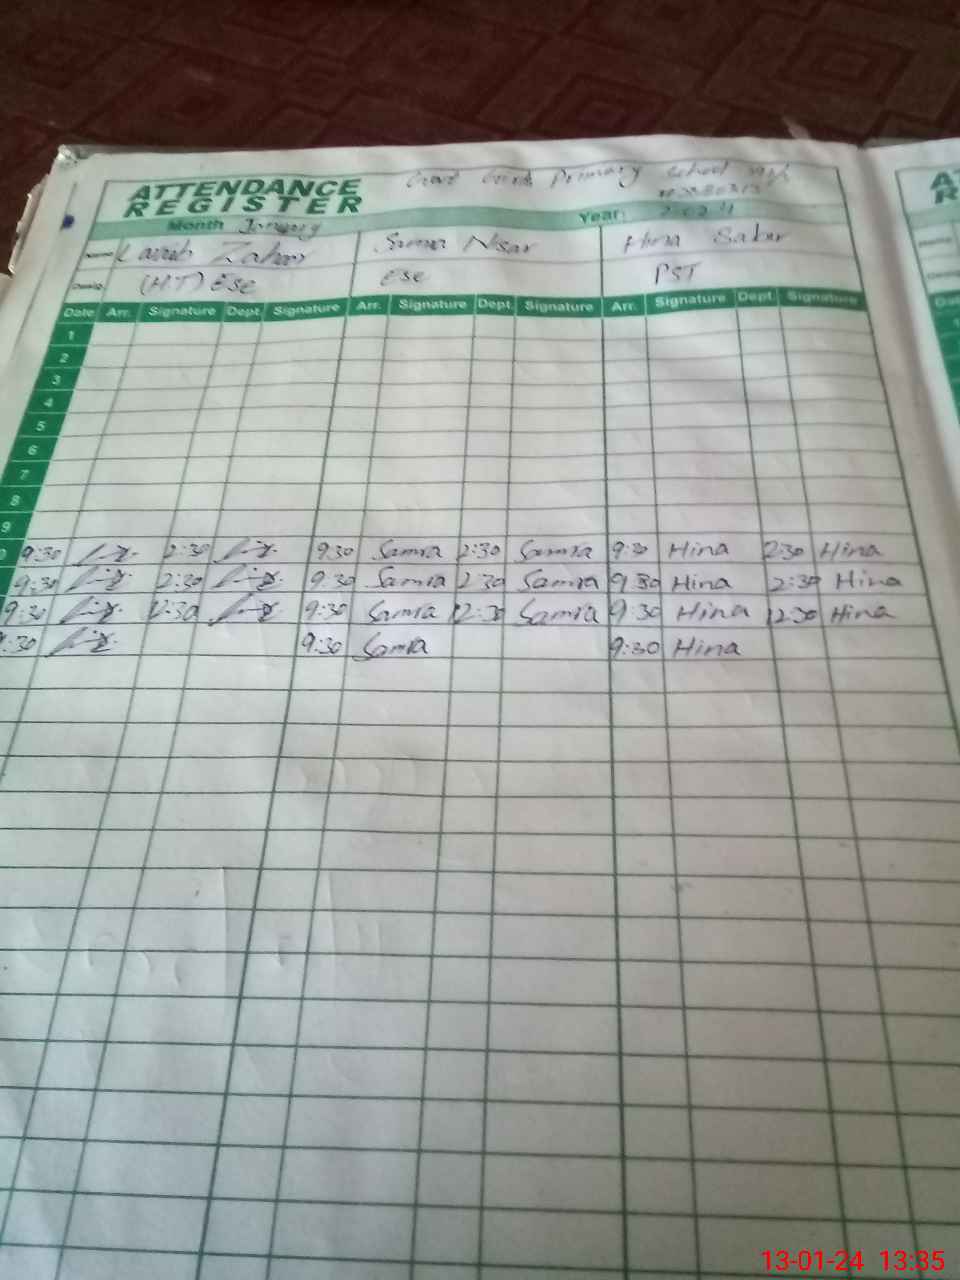 ATTENDANCE
REGISTER
Primary School
Month January Year: 2024
Name Zahoor Samra Nisar Hina Sabir
Desig. (H.T) Ese Ese PST
Date Arr. Signature Dept. Signature Arr. Signature Dept. Signature Arr. Signature Dept. Signature
1
2
3
4
5
6
7
8
9
9:30 2:30 9:30 Samra 2:30 Samra 9:30 Hina 2:30 Hina
9:30 2:30 9:30 Samra 2:30 Samra 9:30 Hina 2:30 Hina
9:30 12:30 9:30 Samra 12:30 Samra 9:30 Hina 12:30 Hina
:30 9:30 Samra 9:30 Hina
13-01-24 13:35